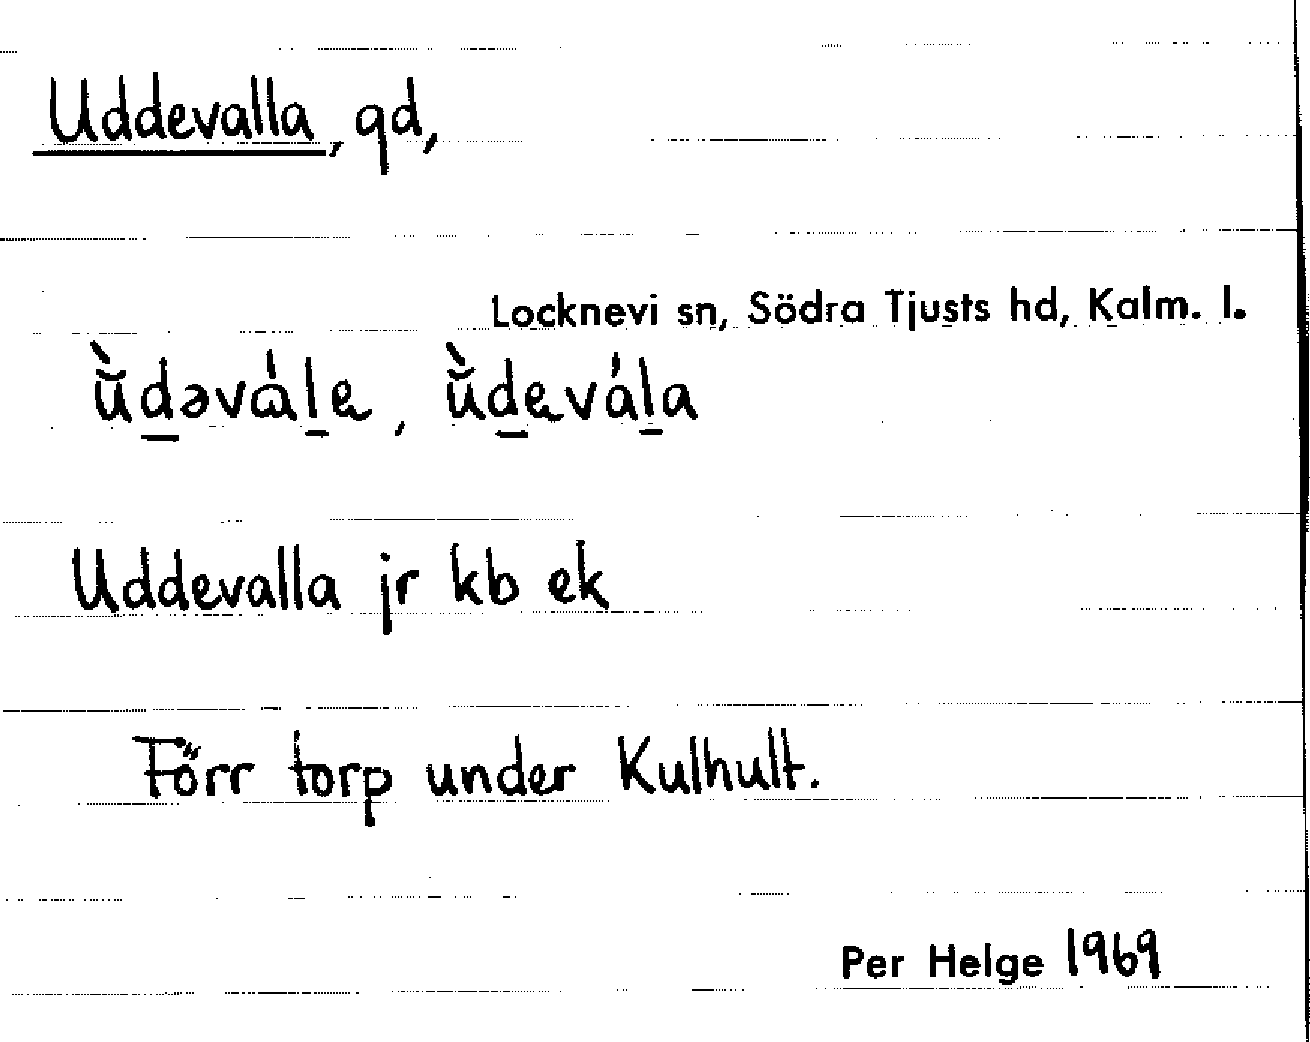 Uddevalla, gd,
Locknevi sn, Södra Tjusts hd, Kalm. l.
ŭ̀d̲əvɑ́l̲a, ŭ̀d̲avál̲a
Uddevalla jr kb ek
Förr torp under Kulhult.
Per Helge 1969